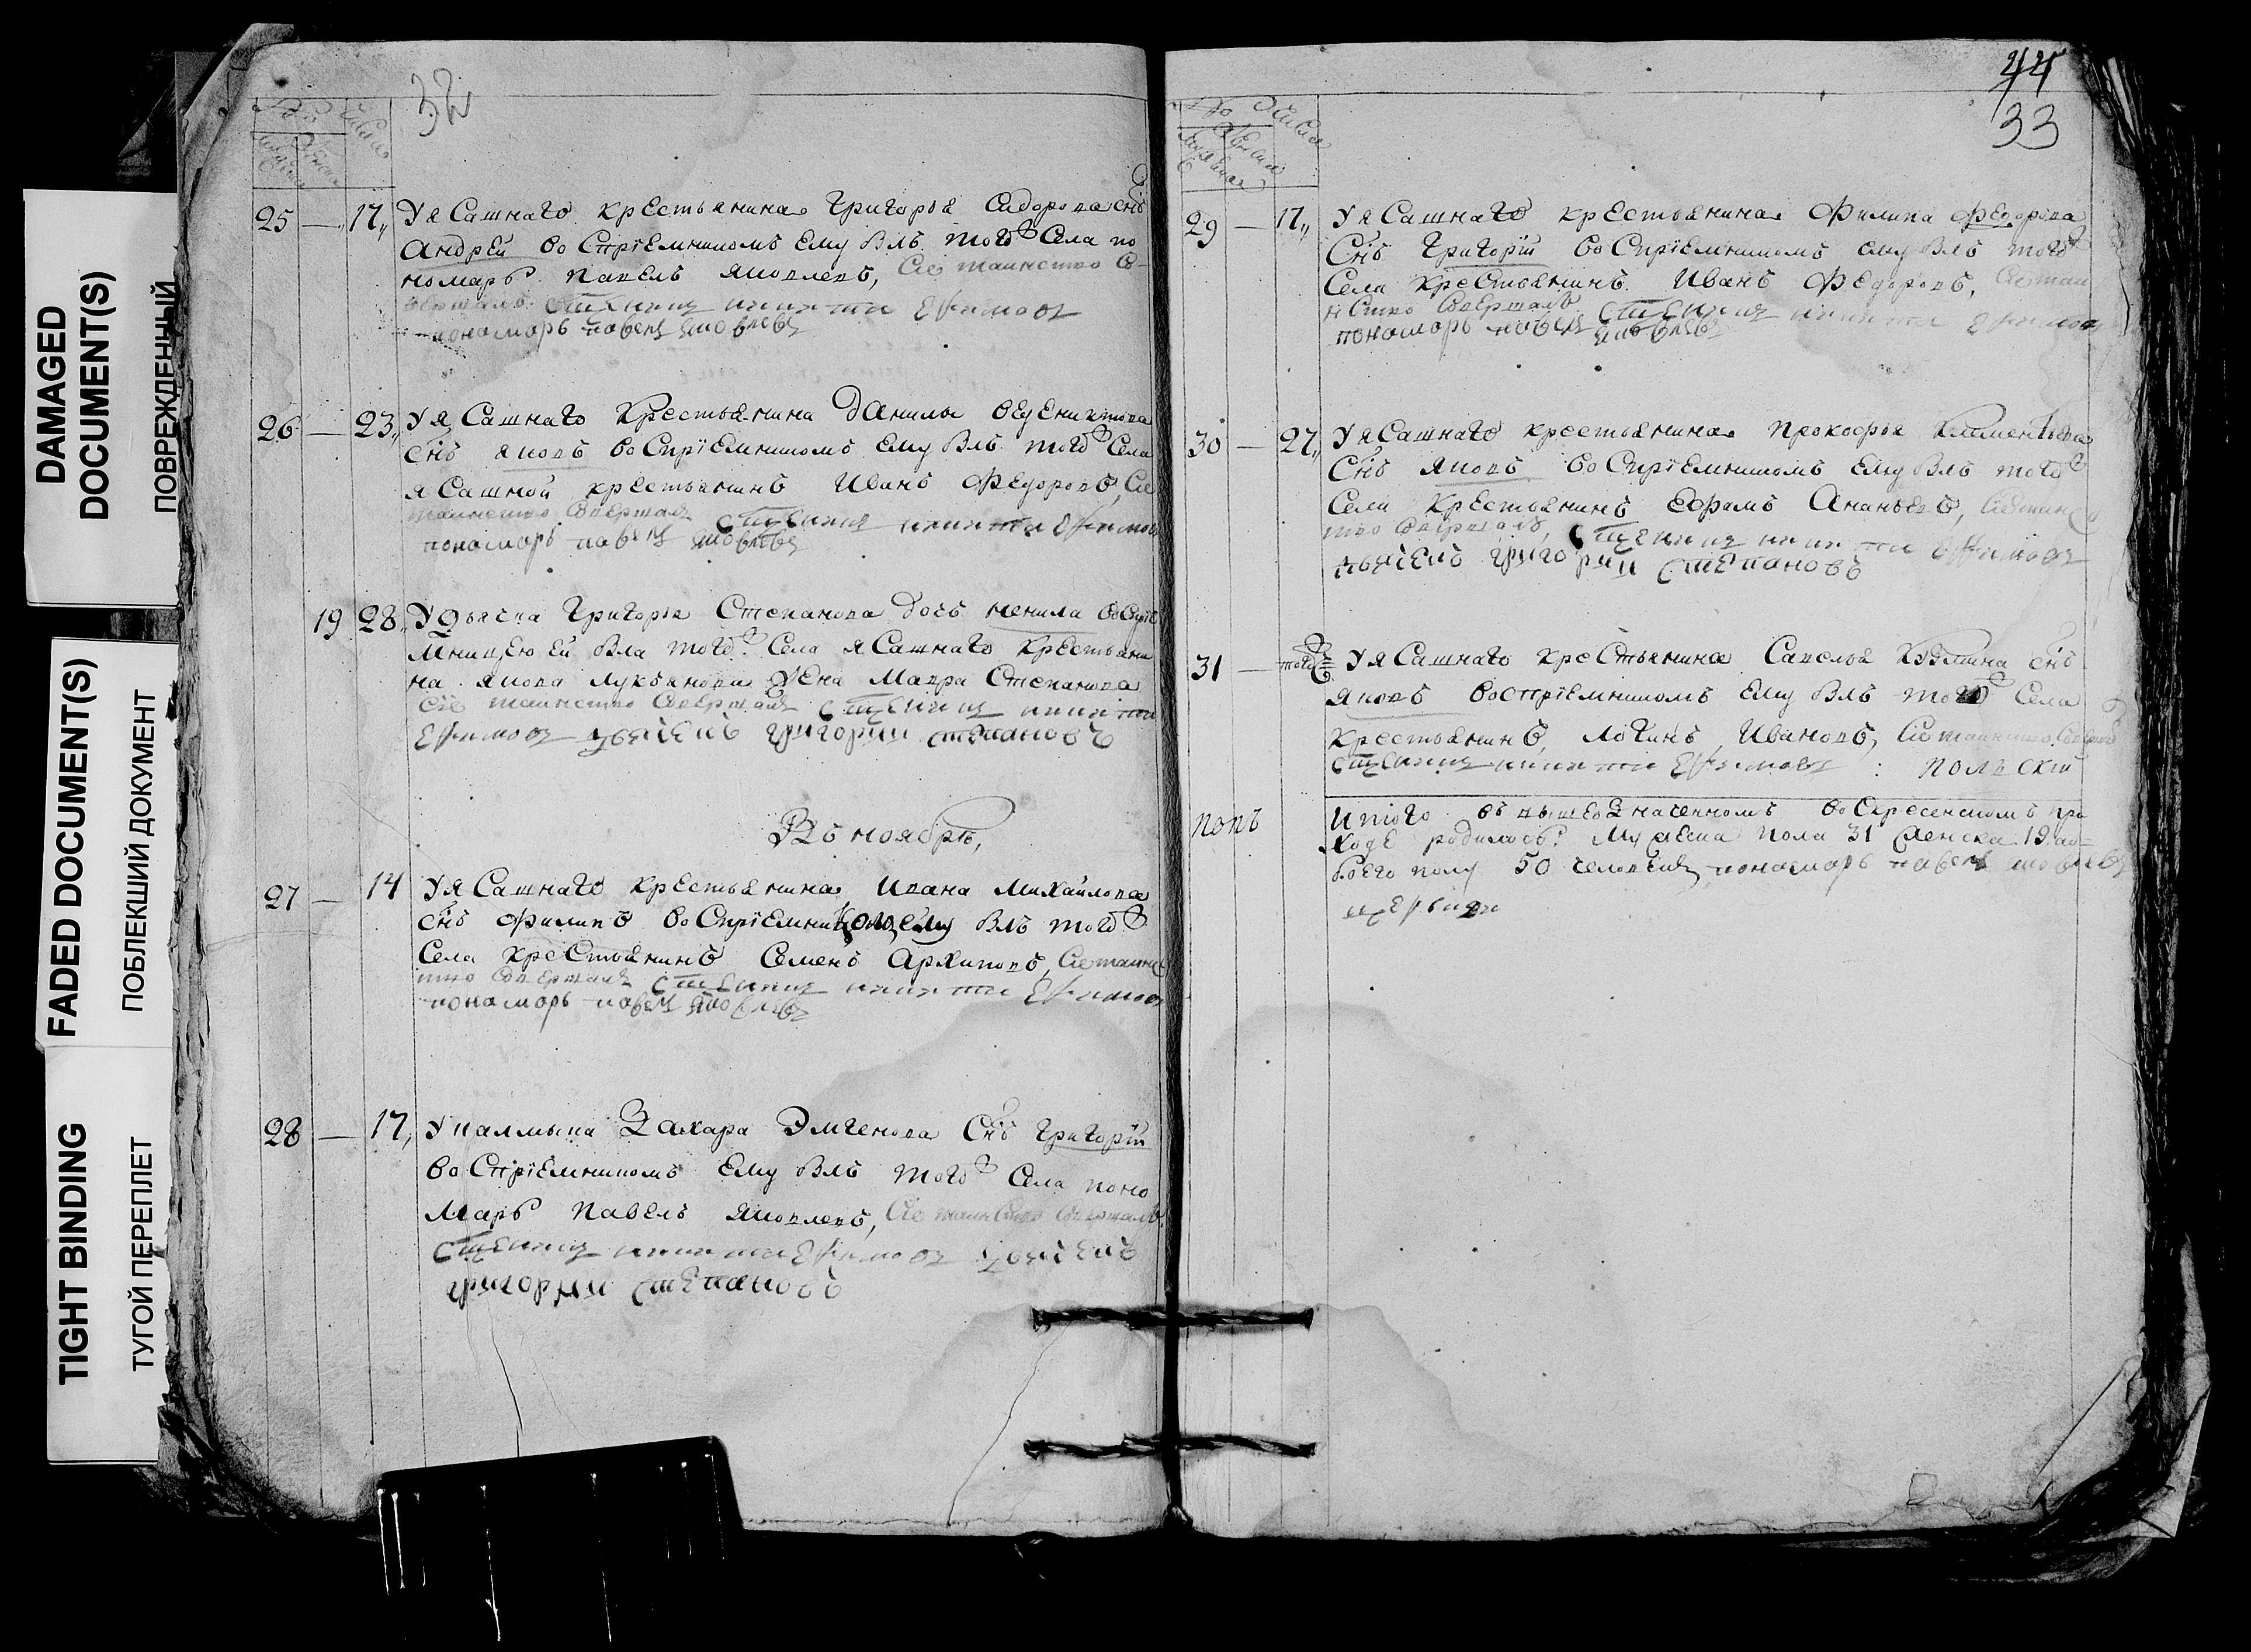 DAMAGED
DOCUMENT(S)
ПОВРЕЖДЕННЫЙ
FADED DOCUMENT(S)
ПОБЛЕКШИЙ ДОКУМЕНТ
TIGHT BINDING
ТУГОЙ ПЕРЕПЛЕТ
32
25 — 17 У ясашнаго крестьянина Григорья Сидорова снъ
Андрей воспріемникомъ ему былъ того села по
номарь Павелъ Яковлевъ, Сіе таинство со-
вершалъ священникъ Никита Ефимовъ
пономарь Павелъ Яковлевъ
26 — 23 У ясашнаго крестьянина Данилы
снъ Яковъ воспріемникомъ ему былъ того села
ясашной крестьянинъ Иванъ Федоровъ, Сіе
таинство совершалъ священникъ Никита Ефимовъ
пономарь Павелъ Яковлевъ
19 28 У дьячка Григорья Степанова дочь Ненила воспріе
мницею ей была того села ясашнаго крестьяни
на Якова Лукоянова жена Мавра Степанова
Сіе таинство совершалъ священникъ Никита
Ефимовъ дьячекъ Григории Степановъ
Въ ноябрѣ,
27 — 14 У ясашнаго крестьянина Ивана Михайлова
снъ Филипъ воспріемникомъ ему былъ того
села крестьянинъ Семенъ Архиповъ, Сіе таинс
тво совершалъ священникъ Никита Ефимовъ
пономарь Павелъ Яковлевъ
28 — 17, У калмыка Захара Эмгенова снъ Григорій
воспріемникомъ ему былъ того села поно
марь Павелъ Яковлевъ, Сіе таинство совершалъ
священникъ Никита Ефимовъ дьячекъ
Григории Степановъ
44
33
29 — 17 У ясашнаго крестьянина Филипа Федорова
снъ Григорій воспріемникомъ ему былъ того
села крестьянинъ Иванъ Федоровъ, Сіе таи
нство совершалъ священникъ Никита Ефимовъ
пономарь Павелъ Яковлевъ
30 — 27 У ясашнаго крестьянина Прокофья Климентьева
снъ Яковъ воспріемникомъ ему былъ того
села крестьянинъ Ефримъ Ананьевъ, Сіе таинс
тво совершалъ священникъ Никита Ефимовъ
дьячекъ Григории Степановъ
31 — того У ясашнаго крестьянина Савелья Кузмина снъ
Яковъ воспріемникомъ ему былъ того села
крестьянинъ Логинъ Ивановъ, Сіе таинство
священникъ Никита Ефимовъ
попъ
Итого въ вышеозначенномъ воскресенскомъ при
ходе родилось мужеска пола 31 женска 19 аи-
боего полу 50 человекъ, пономарь Павелъ Яковлевъ